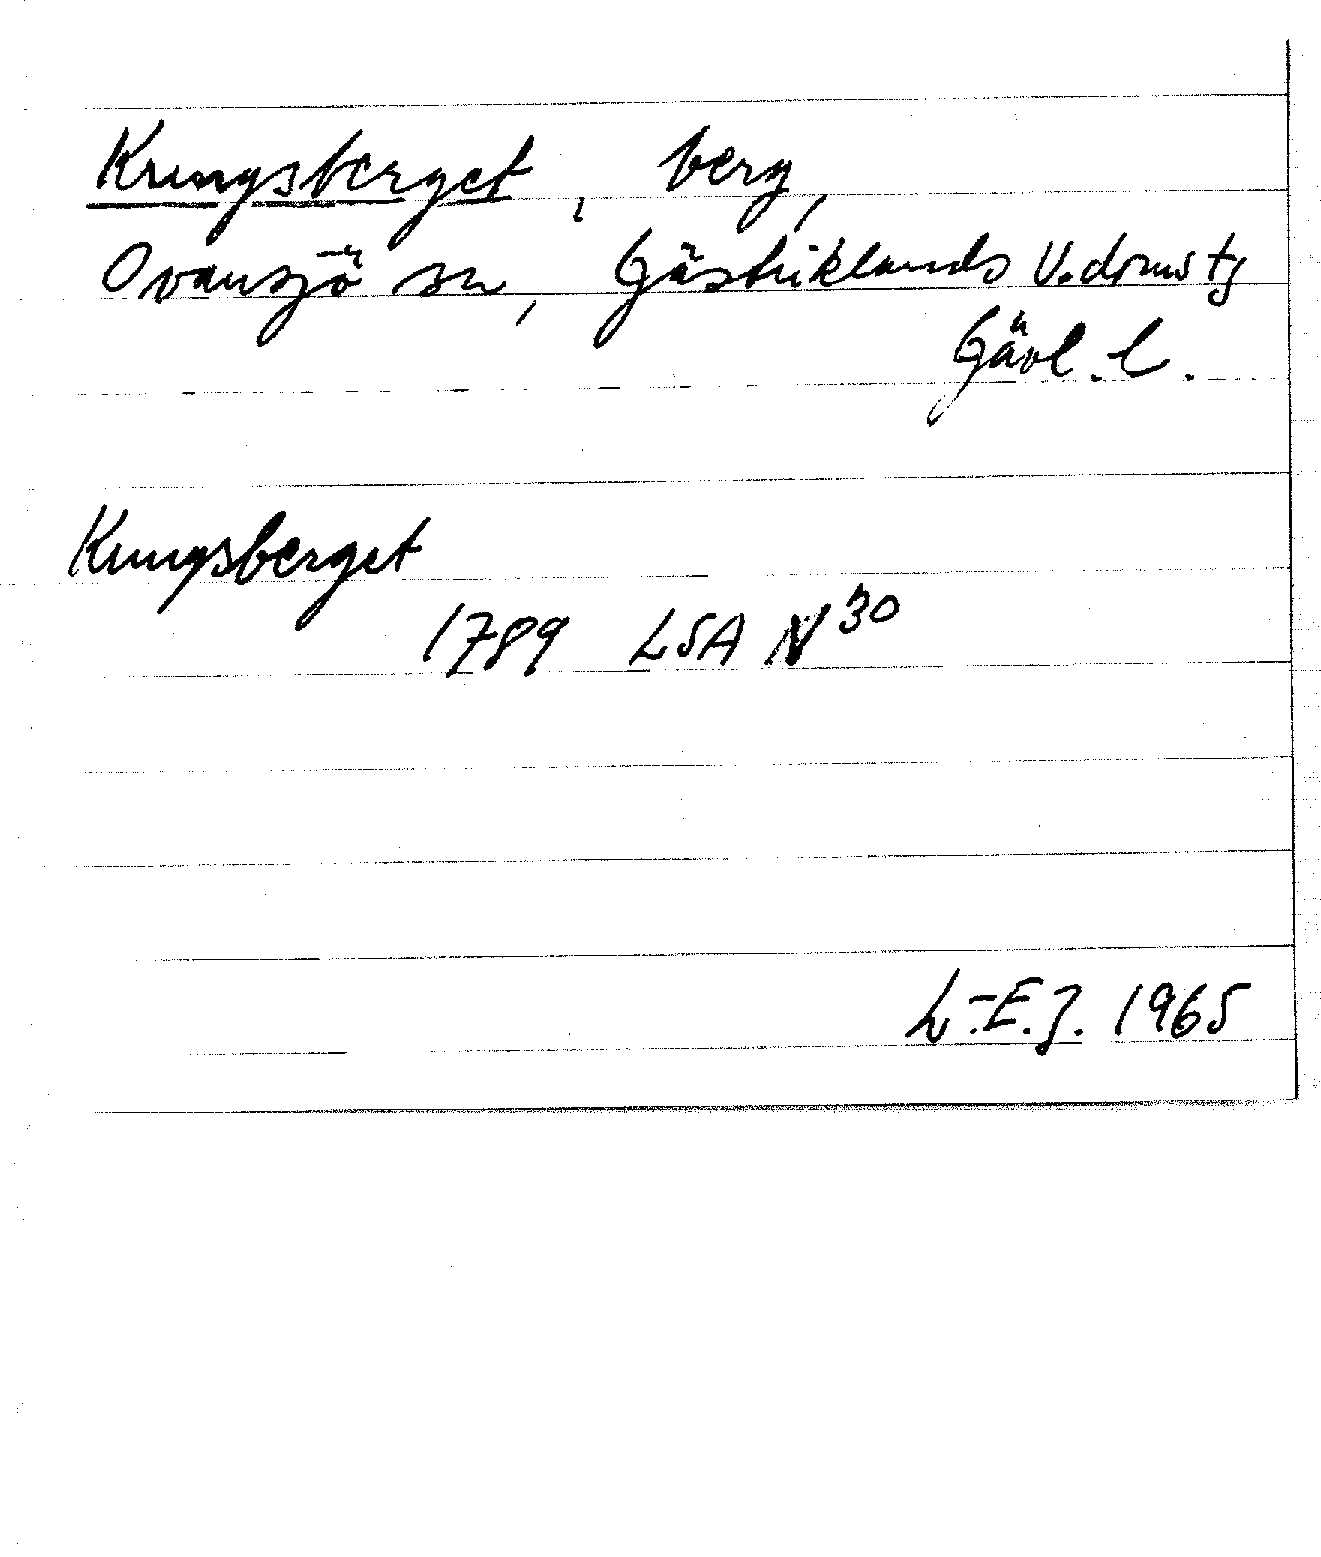 Kungsberget, berg,
Ovansjö sn, Gästriklands V. domstg
Gävl. l.
Kungsberget
1789 LSA N 30
L-E.J. 1965